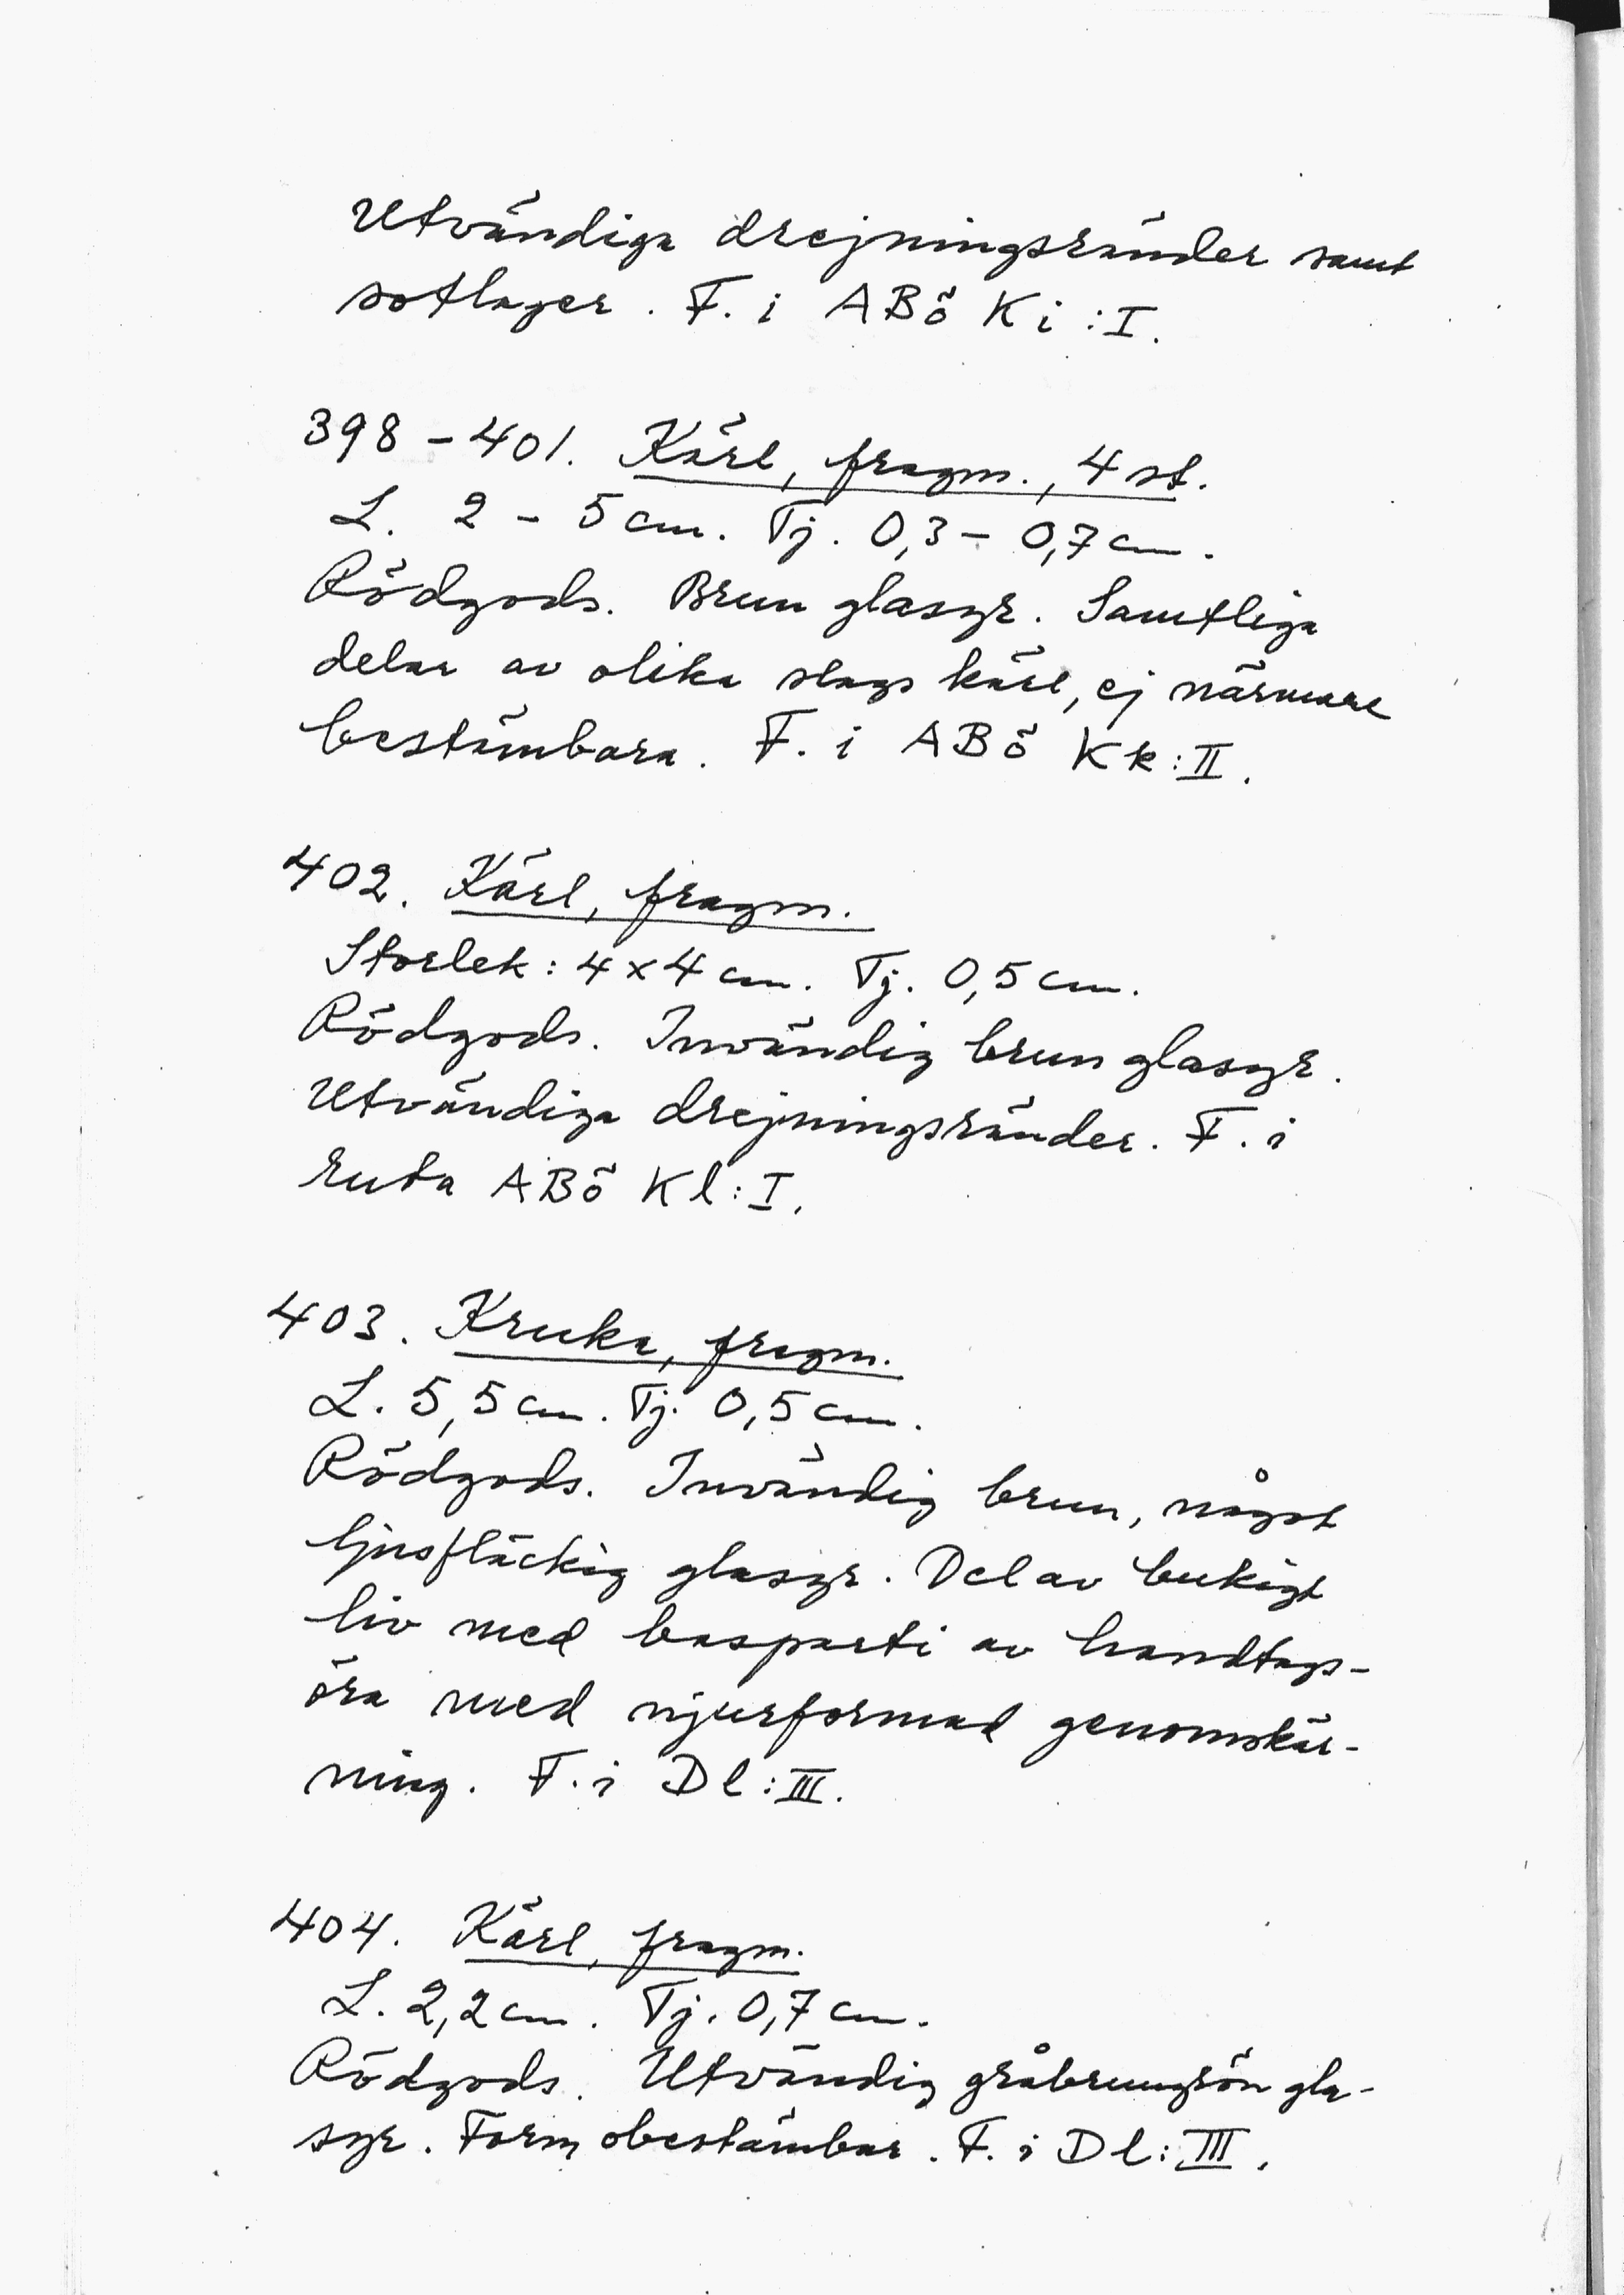 Utvändiga drejningsränder samt
sotlager. F. i ABö Ki:I.
398-401. Kärl, fragm., 4 st.
L. 2-5 cm. Tj. 0,3-0,7 cm.
Rödgods. Brun glasyr. Samtliga
delar av olika slags kärl, ej närmare
bestämbara. F. i ABö Kk:II.
402. Kärl, fragm.
Storlek: 4x4 cm. Tj. 0,5 cm.
Rödgods. Invändig brun glasyr.
Utvändiga drejningsränder. F. i
ruta ABö Kl:I.
403. Kruka, fragm.
L. 5,5 cm. Tj. 0,5 cm.
Rödgods. Invändig brun, något
ljusfläckig glasyr. Del av bukigt
liv med basparti av handtags-
öra med njurformad genomskär-
ning. F. i Dl:III.
404. Kärl, fragm.
L. 2,2 cm. Tj. 0,7 cm.
Rödgods. Utvändig gråbrungrön gla-
syr. Form obestämbar. F. i Dl:III.